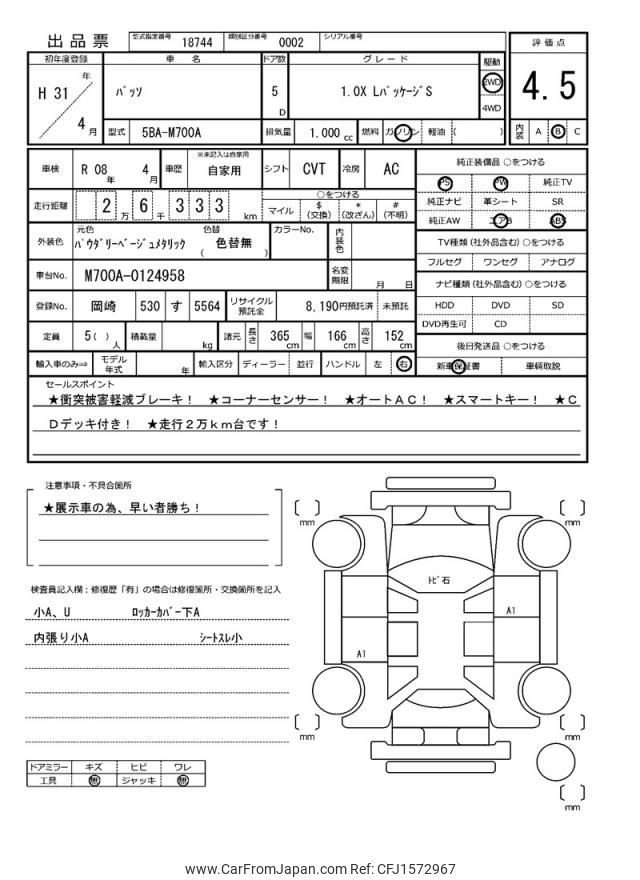 出品票 型式指定番号 18744 類別区分番号 0002 シリアル番号
初年度登録 車名 ドア数 グレード 駆動 評価点
H 31 年 4 月 ﾊﾟｯｿ 5 D 1.0X LﾊﾟｯｹｰｼﾞS 2WD 4WD 4.5
型式 5BA-M700A 排気量 1.000 cc 燃料 ガソリン 軽油 ( ) 内装 A B C
車検 R 08 年 4 月 車歴 ※未記入は自家用 自家用 シフト CVT 冷房 AC 純正装備品 ○をつける
PS PW 純正TV
走行距離 2 万 6 千 3 3 3 km ○をつける 純正ナビ 革シート SR
マイル $ (交換) * (改ざん) # (不明) 純正AW エアB ABS
外装色 元色 ﾊﾟｳﾀﾞﾘｰﾍﾞｰｼﾞｭﾒﾀﾘｯｸ 色替 ( 色替無 ) カラーNo. 内装色 TV種類 (社外品含む) ○をつける
フルセグ ワンセグ アナログ
車台No. M700A-0124958 名変期限 月 日 ナビ種類 (社外品含む) ○をつける
登録No. 岡崎 530 す 5564 リサイクル預託金 8,190円預託済 未預託 HDD DVD SD
DVD再生可 CD
定員 5 ( ) 人 積載量 kg 諸元 長さ 365 cm 幅 166 cm 高さ 152 cm 後日発送品 ○をつける
輸入車のみ⇒ モデル年式 年 輸入区分 ディーラー 並行 ハンドル 左 右 新車保証書 車輌取説
セールスポイント
★衝突被害軽減ブレーキ！ ★コーナーセンサー！ ★オートＡＣ！ ★スマートキー！ ★Ｃ
Ｄデッキ付き！ ★走行２万ｋｍ台です！
注意事項・不具合箇所
★展示車の為、早い者勝ち！
検査員記入欄：修復歴「有」の場合は修復箇所・交換箇所を記入
小A、U ﾛｯｶｰｶﾊﾞｰ下A
内張り小A ｼｰﾄｽﾚ小
ドアミラー キズ ヒビ ワレ
工具 無 ジャッキ 無
mm
mm
ﾄﾋﾞ石
A1
A1
mm
mm
mm
www.CarFromJapan.com Ref: CFJ1572967